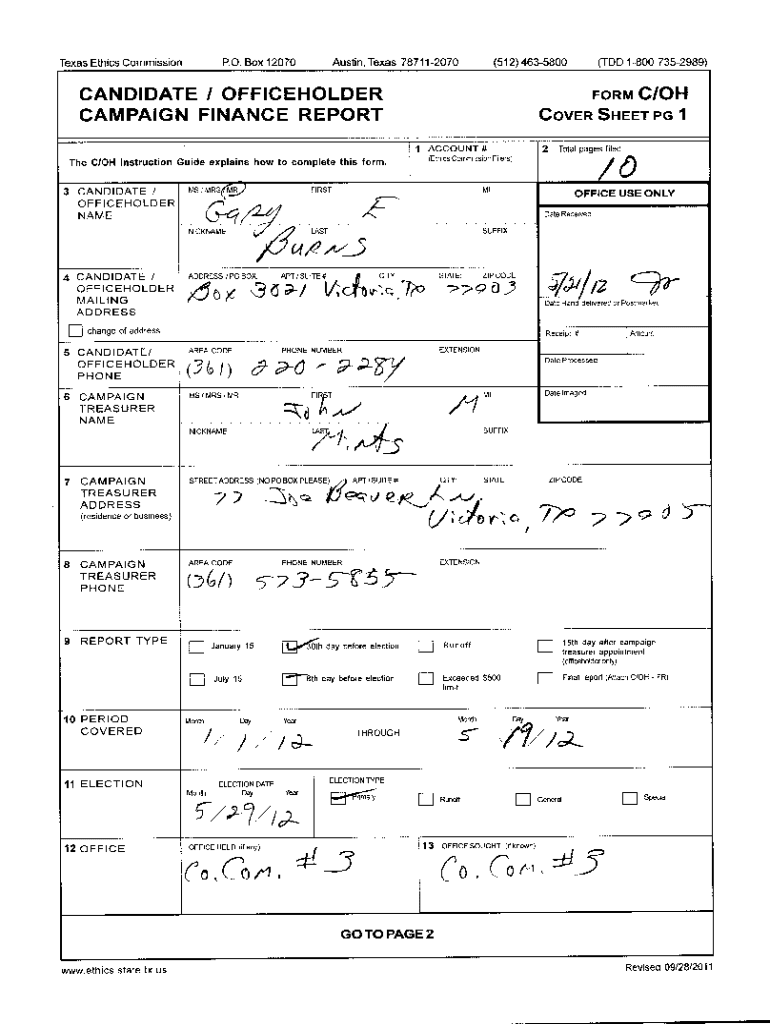 Texas Ethics Commission P.O. Box 12070 Austin, Texas 78711-2070 (512) 463-5800 (TDD 1-800 735-2989)
CANDIDATE / OFFICEHOLDER
CAMPAIGN FINANCE REPORT
FORM C/OH
COVER SHEET PG 1
The C/OH Instruction Guide explains how to complete this form.
1 ACCOUNT #
(Ethics Commission Filers)
2 Total pages filed
10
3 CANDIDATE / OFFICEHOLDER NAME
MS / MRS / MR FIRST MI
Gary E
NICKNAME LAST SUFFIX
Burns
OFFICE USE ONLY
Date Received
5/21/12
Date Hand delivered or Postmarked
Receipt # Amount
Date Processed
Date Imaged
4 CANDIDATE / OFFICEHOLDER MAILING ADDRESS
change of address
ADDRESS / PO BOX APT / SUITE # CITY STATE ZIP CODE
Box 3021 Victoria, TX 77903
5 CANDIDATE / OFFICEHOLDER PHONE
AREA CODE PHONE NUMBER EXTENSION
(361) 220-2284
6 CAMPAIGN TREASURER NAME
MS / MRS / MR FIRST MI
John M
NICKNAME LAST SUFFIX
7 CAMPAIGN TREASURER ADDRESS
(residence or business)
STREET ADDRESS (NO PO BOX PLEASE) APT / SUITE # CITY STATE ZIP CODE
77 Joe Beaver Ln,
Victoria, TX 77905
8 CAMPAIGN TREASURER PHONE
AREA CODE PHONE NUMBER EXTENSION
(361) 573-5855
9 REPORT TYPE
January 15 30th day before election Runoff 15th day after campaign treasurer appointment (officeholder only)
July 15 8th day before election Exceeded $500 limit Final report (Attach C/OH - FR)
10 PERIOD COVERED
Month Day Year THROUGH Month Day Year
1/1/12 5 19/12
11 ELECTION
ELECTION DATE
Month Day Year
5/29/12
ELECTION TYPE
Primary Runoff General Special
12 OFFICE
OFFICE HELD (if any)
Co. Com. # 3
13 OFFICE SOUGHT (if known)
Co. Com. # 3
GO TO PAGE 2
www.ethics.state.tx.us Revised 09/28/2011